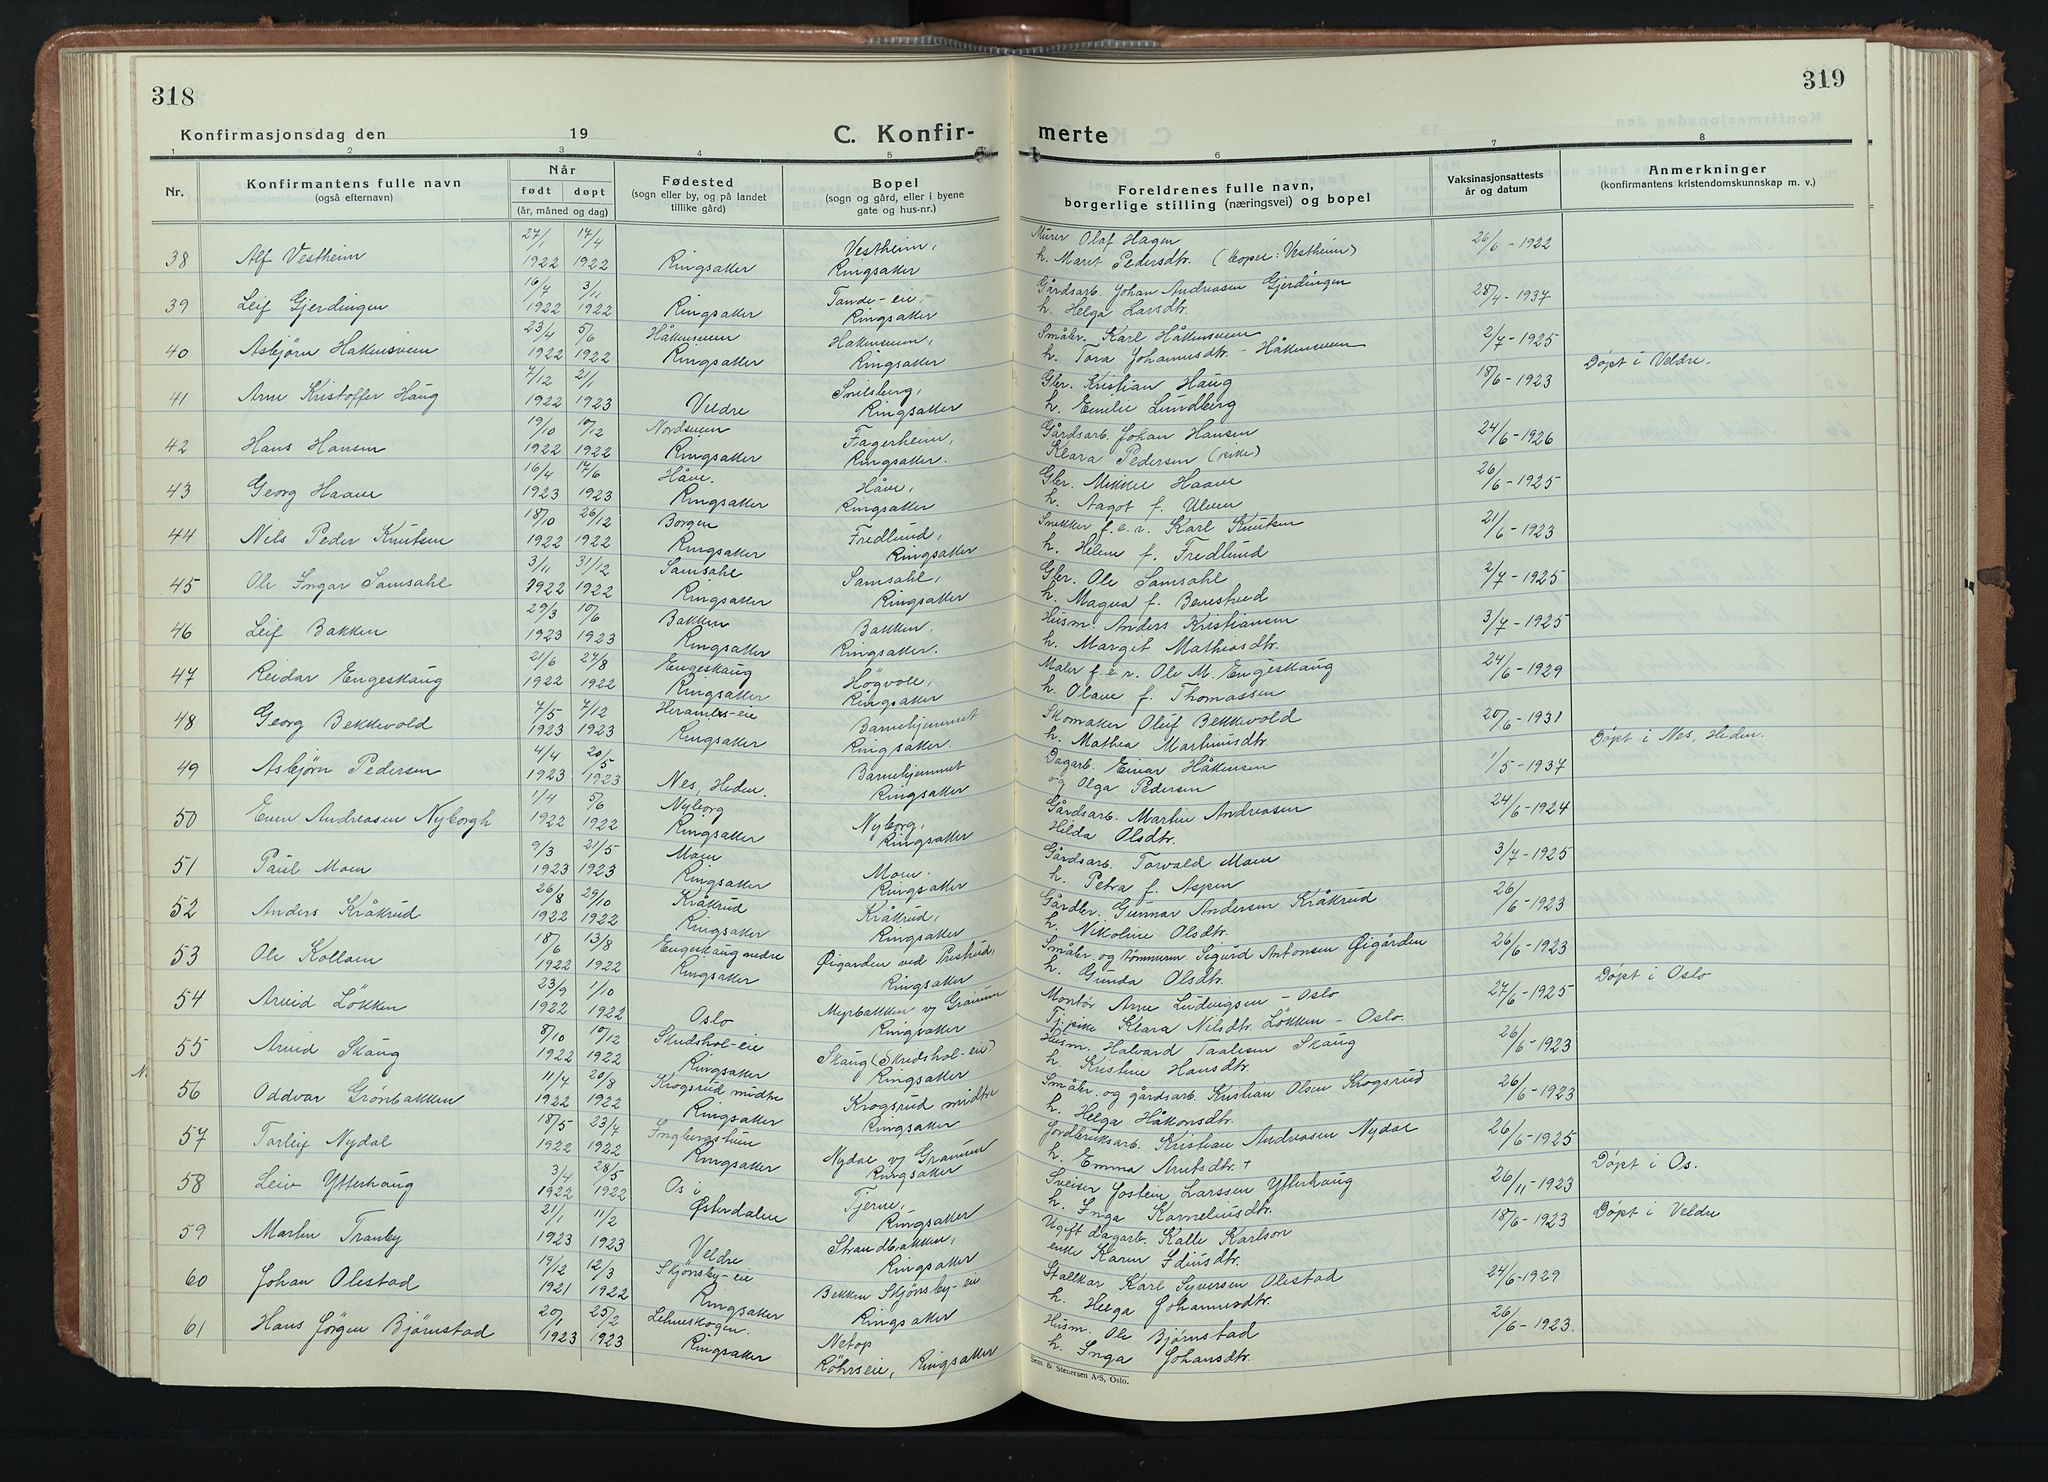 318
Konfirmasjonsdag den 19
C. Konfir-
1 2 3 4 5
Nr. Konfirmantens fulle navn (også efternavn) Når født døpt (år, måned og dag) Fødested (sogn eller by, og på landet tillike gård) Bopel (sogn og gård, eller i byene gate og hus-nr.)
27/1 17/4 Vestheim,
38 Alf Vestheim 1922 1922 Ringsaker Ringsaker
16/7 3/11 Tande-eie,
39 Leif Gjerdingen 1922 1922 Ringsaker Ringsaker
23/4 5/6 Håkensveen Hakensveen,
40 Asbjørn Hakensveen 1922 1922 Ringsaker Ringsaker
7/12 21/1
41 Arne Kristoffer Haug 1922 1923 Veldre Ringsaker
19/10 10/12 Nordsveen Fagerheim,
42 Hans Hansen 1922 1922 Ringsaker Ringsaker.
16/4 17/6 Håve. Håve,
43 Georg Haave 1923 1923 Ringsaker Ringsaker
18/10 26/12 Borgen Fredlund,
44 Nils Peder Knutsen 1922 1922 Ringsaker Ringsaker
3/11 31/12 Samsahl Samsahl,
45 Ole Ingar Samsahl 1922 1922 Ringsaker Ringsaker
29/3 10/6 Bakken Bakken,
46 Leif Bakken 1923 1923 Ringsaker Ringsaker.
21/6 27/8 Engeskaug Høgvoll,
47 Reidar Engeskaug 1922 1922 Ringsaker Ringsaker
7/5 7/12 Barnehjemmet
48 Georg Bekkevold 1923 1923 Ringsaker Ringsaker.
4/4 20/5 Barnehjemmet
49 Asbjørn Pedersen 1923 1923 Nes, Heden. Ringsaker
1/4 5/6 Nyborg Nyborg,
50 Even Andreasen Nyborgh 1922 1922 Ringsaker Ringsaker
9/3 21/5 Moen Moen,
51 Paul Moen 1923 1923 Ringsaker Ringsaker
26/8 29/10 Kråkrud Kråkrud,
52 Anders Kråkrud 1922 1922 Ringsaker Ringsaker
18/6 13/8 Engeskaug nedre Øigarden ved Prestrud,
53 Ole Kolloen 1922 1922 Ringsaker Ringsaker
23/9 1/10 Myrbakken v/ Gaaum
54 Arvid Løkken 1922 1922 Oslo Ringsaker
8/10 10/12 Skudshol-eie Skaug (Skudshol-eie)
55 Arvid Skaug 1922 1922 Ringsaker Ringsaker
11/4 20/8 Krogsrud midtre Krogsrud midtre
56 Oddvar Grønbakken 1922 1922 Ringsaker Ringsaker
18/5 23/7 Ingbergshun Nydal v/
57 Torleif Nydal 1922 1922 Ringsaker Ringsaker
3/4 28/5 Os i Tjerne,
58 Leiv Ytterhaug 1922 1922 Østerdalen Ringsaker
21/1 11/2 Strandbakken,
59 Martin Tranby 1923 1923 Veldre Ringsaker
19/12 12/3 Skjønsby-eie Bekken Skjønsby-eie
60 Johan Olestad 1921 1922 Ringsaker Ringsaker
20/1 25/2 Lehneskogen. Netop
61 Hans Jørgen Bjørnstad 1923 1923 Ringsaker Røhrseie, Ringsaker
319
merte
6 7 8
Foreldrenes fulle navn, borgerlige stilling (næringsvei) og bopel Vaksinasjonsattests år og datum Anmerkninger (konfirmantens kristendomskunnskap m. v.)
Murer Olaf Hagen 26/6-1922
h. Marit Pedersdtr. (bopel: Vestheim)
Gårdsarb. Johan Andreasen Gjerdingen 28/4-1937
h. Helga Larsdtr.
Småbr. Karl Håkensveen 2/7-1925
h. Tora Johannesdtr. - Håkensveen
Gbr. Kristian Haug 18/6-1923 Døpt i Veldre.
h. Emilie Lundberg
Gårdsarb. Johan Hansen 24/6-1926
Klara Pedersen (pike)
Gbr. Mikkel Haave 26/6-1925
h. Aagot f. Ulven
Snekker f.e.r. Karl Knutsen 21/6-1923
h. Helene f. Fredlund
Gbr. Ole Samsahl 2/7-1925
h. Magna f. Benestved
Husm. Anders Kristiansen 3/7-1925
h. Margit Mathiasdtr.
Maler f.e.r. Ole M. Engeskaug 24/6-1929
h. Olave f. Thomassen
Skomaker Oluf Bekkevold 20/6-1931
h. Mathea Martinusdtr.
Dagarb. Einar Håkensen 1/5-1937 Døpt i Nes, Heden.
og Olga Pedersen
Gårdsarb. Martin Andreasen 24/6-1924
Hilda Olsdtr.
Gårdsarb. Torvald Moen 3/7-1925
h. Petra f. Aspen
Gårdbr. Gunnar Andersen Kråkrud 26/6-1923
h. Nikoline Olsdtr.
Småbr. og tømmerm. Sigurd Antonsen Øigården 26/6-1923
h. Gunda Olsdtr.
Montør Arne Ludvigsen - Oslo 27/6-1925 Døpt i Oslo
Tj.pike Klara Nilsdtr. Løkken - Oslo.
Husm. Halvard Taalesen Skaug 26/6-1923
h. Kristine Hansdtr.
Småbr. og gårdsarb. Kristian Olsen Krogsrud 26/6-1923
h. Helga Håkonsdtr.
Jordbruksarb. Kristian Andreasen Nydal 26/6-1925
h. Emma Arntsdtr. +
Sveiser Jostein Larssen Ytterhaug 26/11-1923 Døpt i Os.
h. Inga Korneliusdtr.
Ugift dagarb. Kalle Karlson 18/6-1923 Døpt i Veldre
enke Karen Idiusdtr.
Stallkar Karl Syversen Olestad 24/6-1929
h. Helga Johannesdtr.
Husm. Ole Bjørnstad 26/6-1923.
h. Inga Johansdtr.
Sem & Stenersen A/S, Oslo.